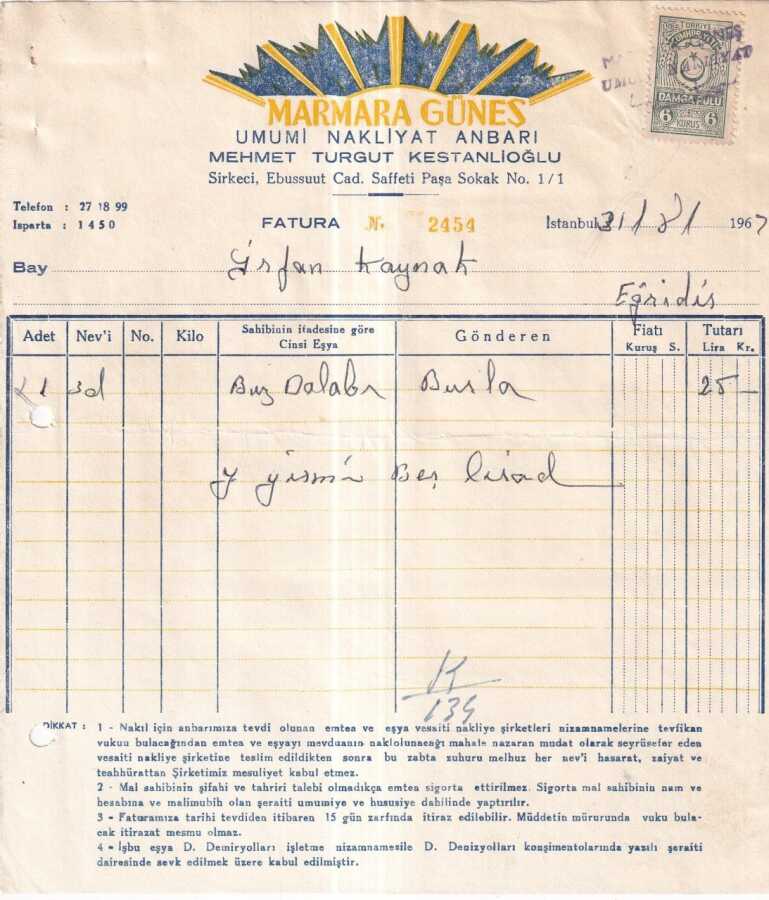 MARMARA GÜNEŞ
UMUMİ NAKLİYAT ANBARI
MEHMET TURGUT KESTANLİOĞLU
Sirkeci, Ebussuut Cad. Saffeti Paşa Sokak No. 1/1
TÜRKİYE
DAMGA PULU
6 KURUŞ 6
Telefon : 27 18 99
Isparta : 1450
FATURA N. 2454
İstanbul 31/8/1967
Bay İrfan Kaynak
Eğridis
Adet Nev'i No. Kilo Sahibinin ifadesine göre Cinsi Eşya Gönderen Fiatı Kuruş S. Tutarı Lira Kr.
1 3d Buz Dalabı Bursla 25 —
Y yirmi Beş lirad
K
139
DİKKAT : 1 - Nakıl için anbarımıza tevdi olunan emtea ve eşya vesaiti nakliye şirketleri nizamnamelerine tevfikan
vukuu bulacağından emtea ve eşyayı mevduanın naklolunacağı mahale nazaran mudat olarak seyrüsefer eden
vesaiti nakliye şirketine teslim edildikten sonra bu zabta zuhuru melhuz her nev'i hasarat, zaiyat ve
teahhürattan Şirketimiz mesuliyet kabul etmez.
2 - Mal sahibinin şifahi ve tahriri talebi olmadıkça emtea sigorta ettirilmez. Sigorta mal sahibinin nam ve
hesabına ve malimubih olan şeraiti umumiye ve hususiye dahilinde yaptırılır.
3 - Faturamıza tarihi tevdiden itibaren 15 gün zarfında itiraz edilebilir. Müddetin mürurunda vuku bula-
cak itirazat mesmu olmaz.
4 - İşbu eşya D. Demiryolları işletme nizamnamesile D. Denizyolları konşimentolarında yazılı şeraiti
dairesinde sevk edilmek üzere kabul edilmiştir.